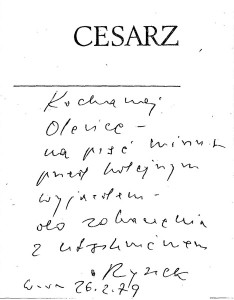 CESARZ
Kochanej
Oleńce –
na pięć minut
przed kolejnym
wyjazdem –
do zobaczenia
z uśmiechem
Rysiek
W-wa 26.2.79